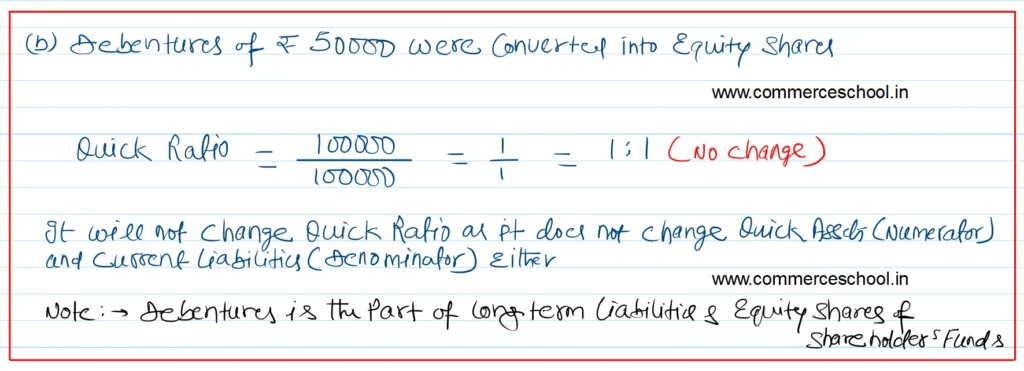 (b) Debentures of ₹ 50000 were Converted into Equity Shares
www.commerceschool.in
Quick Ratio = 100000 / 100000 = 1 / 1 = 1 : 1 (No change)
It will not change Quick Ratio as it does not change Quick Assets (Numerator)
and Current Liabilities (Denominator) Either
www.commerceschool.in
Note : → Debentures is the Part of long term liabilities & Equity Shares of
Shareholder's Funds